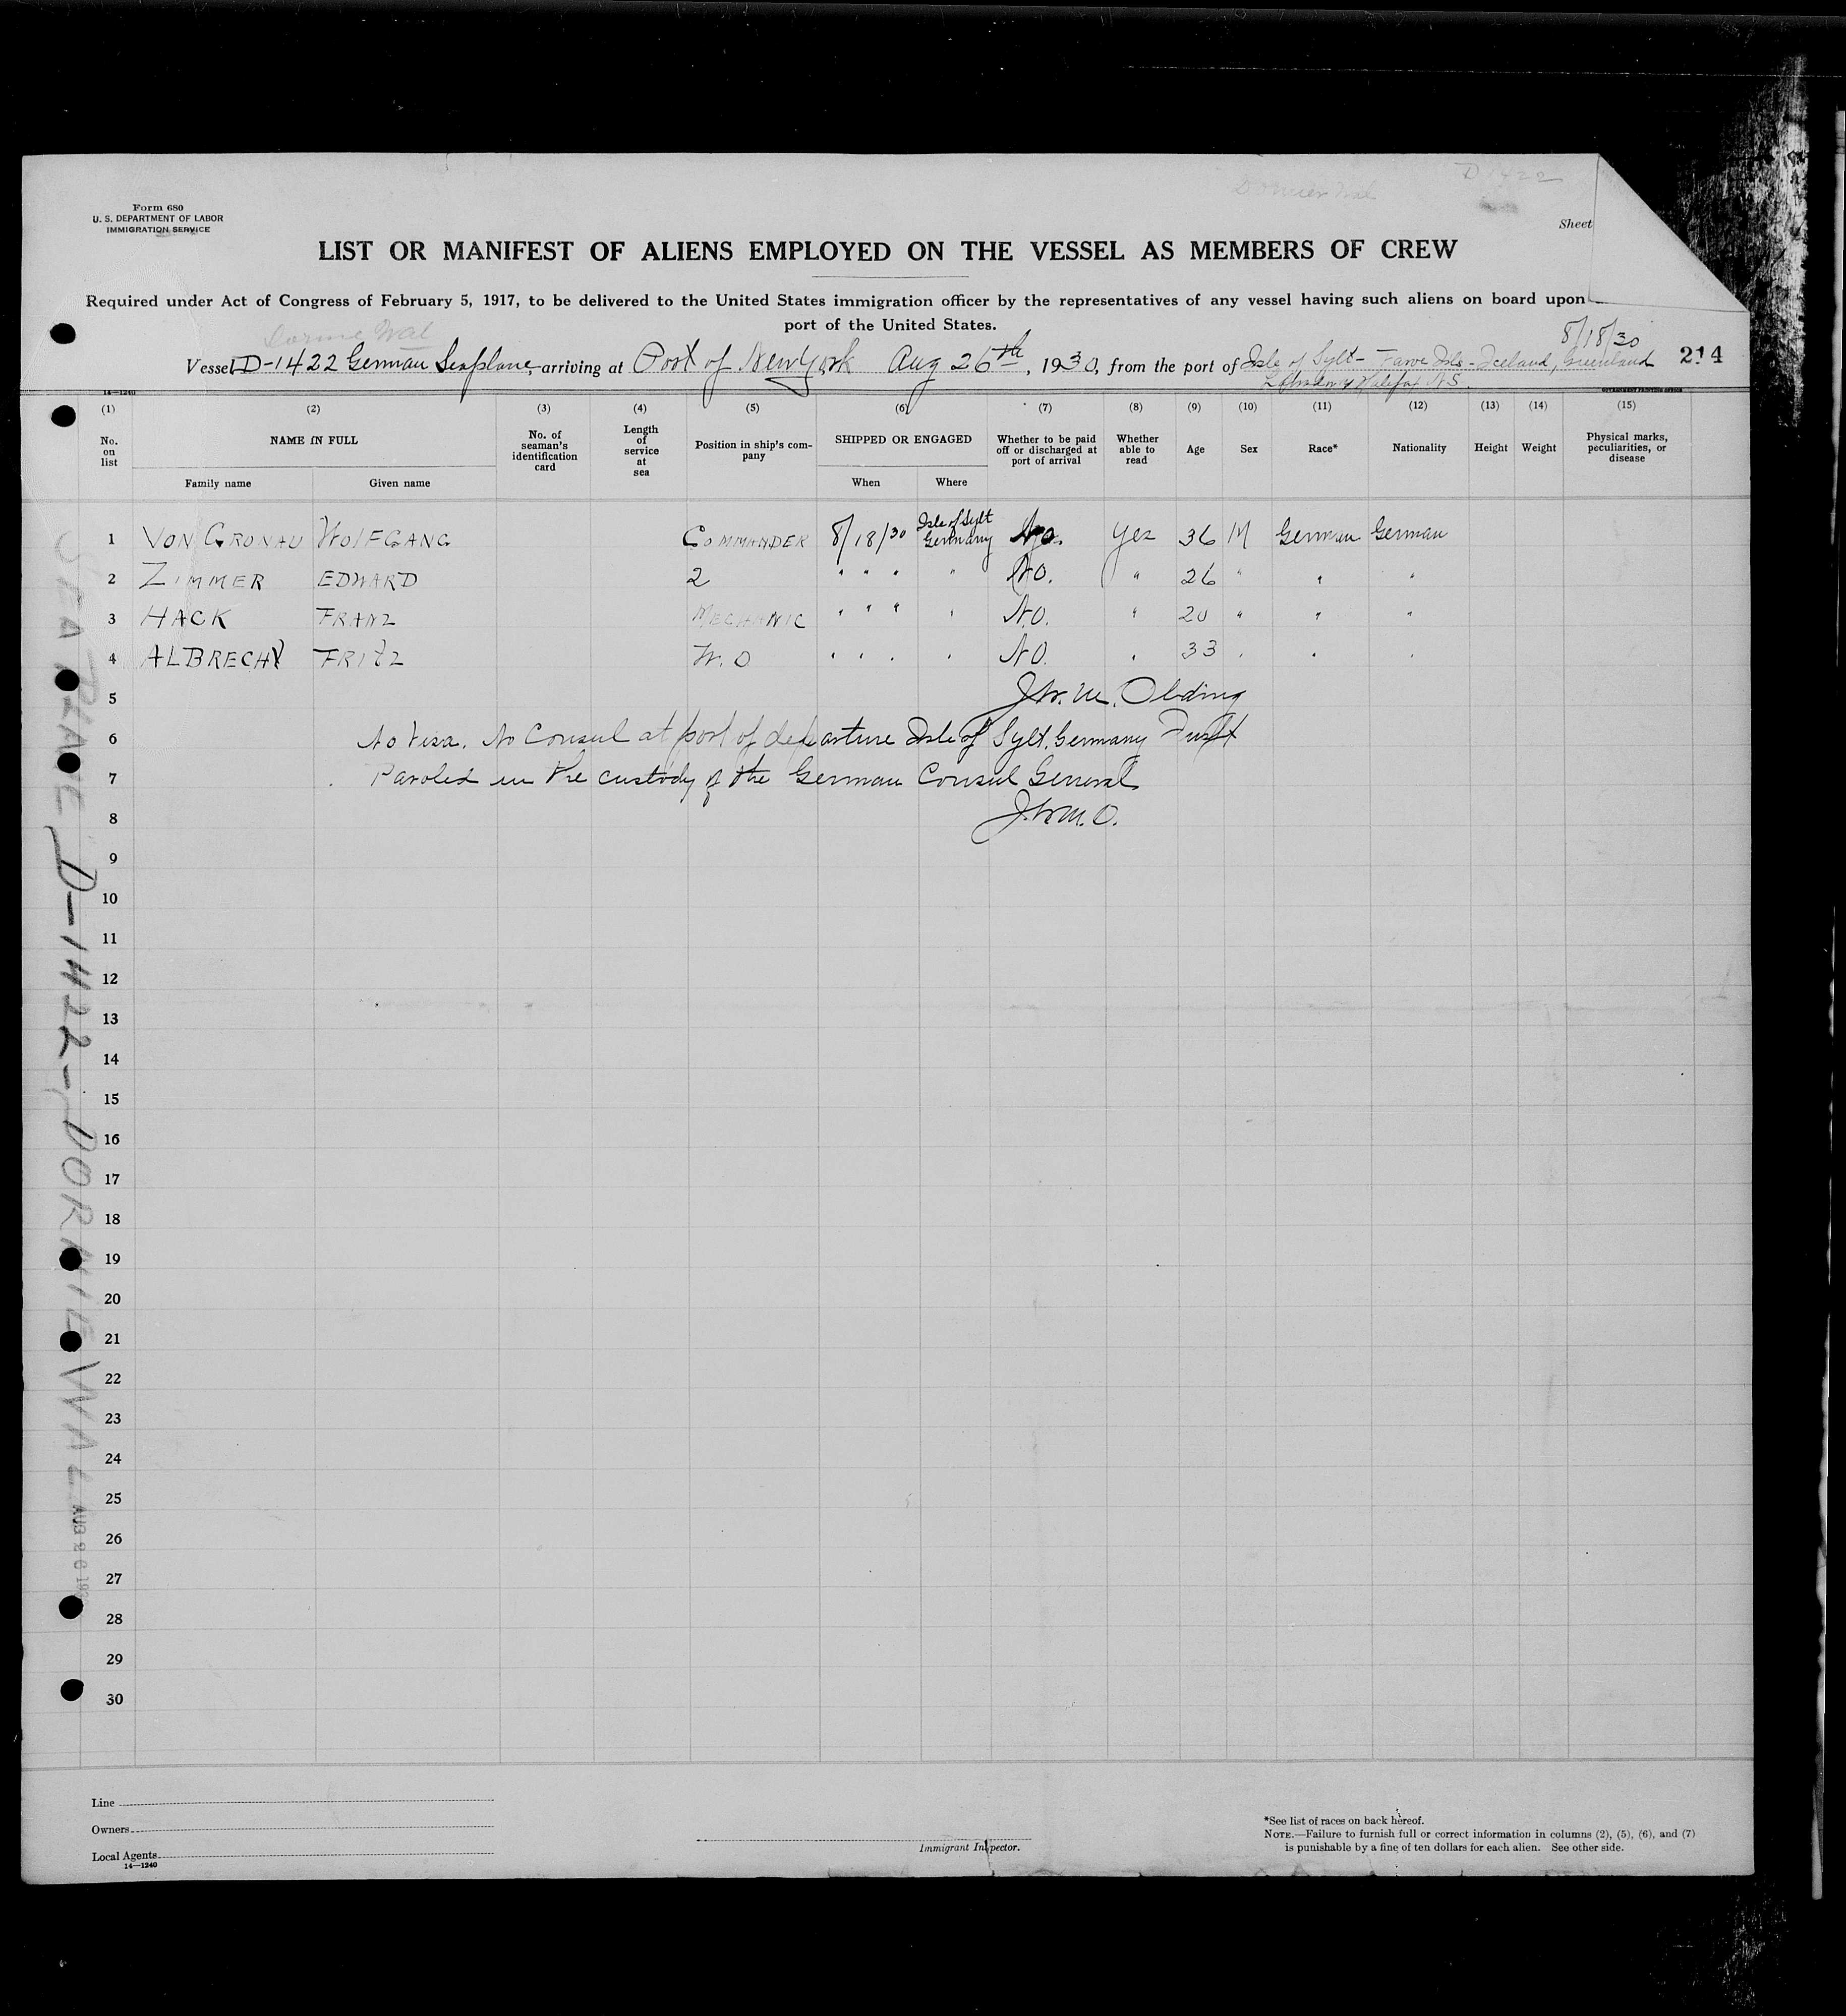 Dornier Wal D 1422
Form 680
U. S. DEPARTMENT OF LABOR
IMMIGRATION SERVICE
Sheet
LIST OR MANIFEST OF ALIENS EMPLOYED ON THE VESSEL AS MEMBERS OF CREW
Required under Act of Congress of February 5, 1917, to be delivered to the United States immigration officer by the representatives of any vessel having such aliens on board upon
port of the United States.
Wal
8/18/30
Vessel D-1422 German Seaplane, arriving at Port of New York Aug 26th, 1930, from the port of Isle of Sylt - Faroe Isls - Iceland, Greenland 214
Halifax N.S.
14—1240 GOVERNMENT PRINTING OFFICE
(1) (2) (3) (4) (5) (6) (7) (8) (9) (10) (11) (12) (13) (14) (15)
No. on list NAME IN FULL No. of seaman's identification card Length of service at sea Position in ship's company SHIPPED OR ENGAGED Whether to be paid off or discharged at port of arrival Whether able to read Age Sex Race* Nationality Height Weight Physical marks, peculiarities, or disease
Family name Given name When Where
1 VON GRONAU WOLFGANG COMMANDER 8/18/30 Isle of Sylt Germany No. Yes 36 M German German
2 ZIMMER EDWARD 2 " " " " NO. " 26 " " "
3 HACK FRANZ MECHANIC " " " " N.O. " 20 " " "
4 ALBRECHT FRITZ W. O " " " " NO. " 33 " " "
5 J.W.M. Olding
6 No Visa. No Consul at port of departure Isle of Sylt, Germany
7 Paroled in the custody of the German Consul General
8 J.W.M.O.
9
10
11
12
13
14
15
16
17
18
19
20
21
22
23
24
25
26
27
28
29
30
SEA PLANE D-1422 - DORNIE WAL AUG 26 1930
Line
Owners
Local Agents
14—1240
Immigrant Inspector.
*See list of races on back hereof.
NOTE.—Failure to furnish full or correct information in columns (2), (5), (6), and (7)
is punishable by a fine of ten dollars for each alien. See other side.